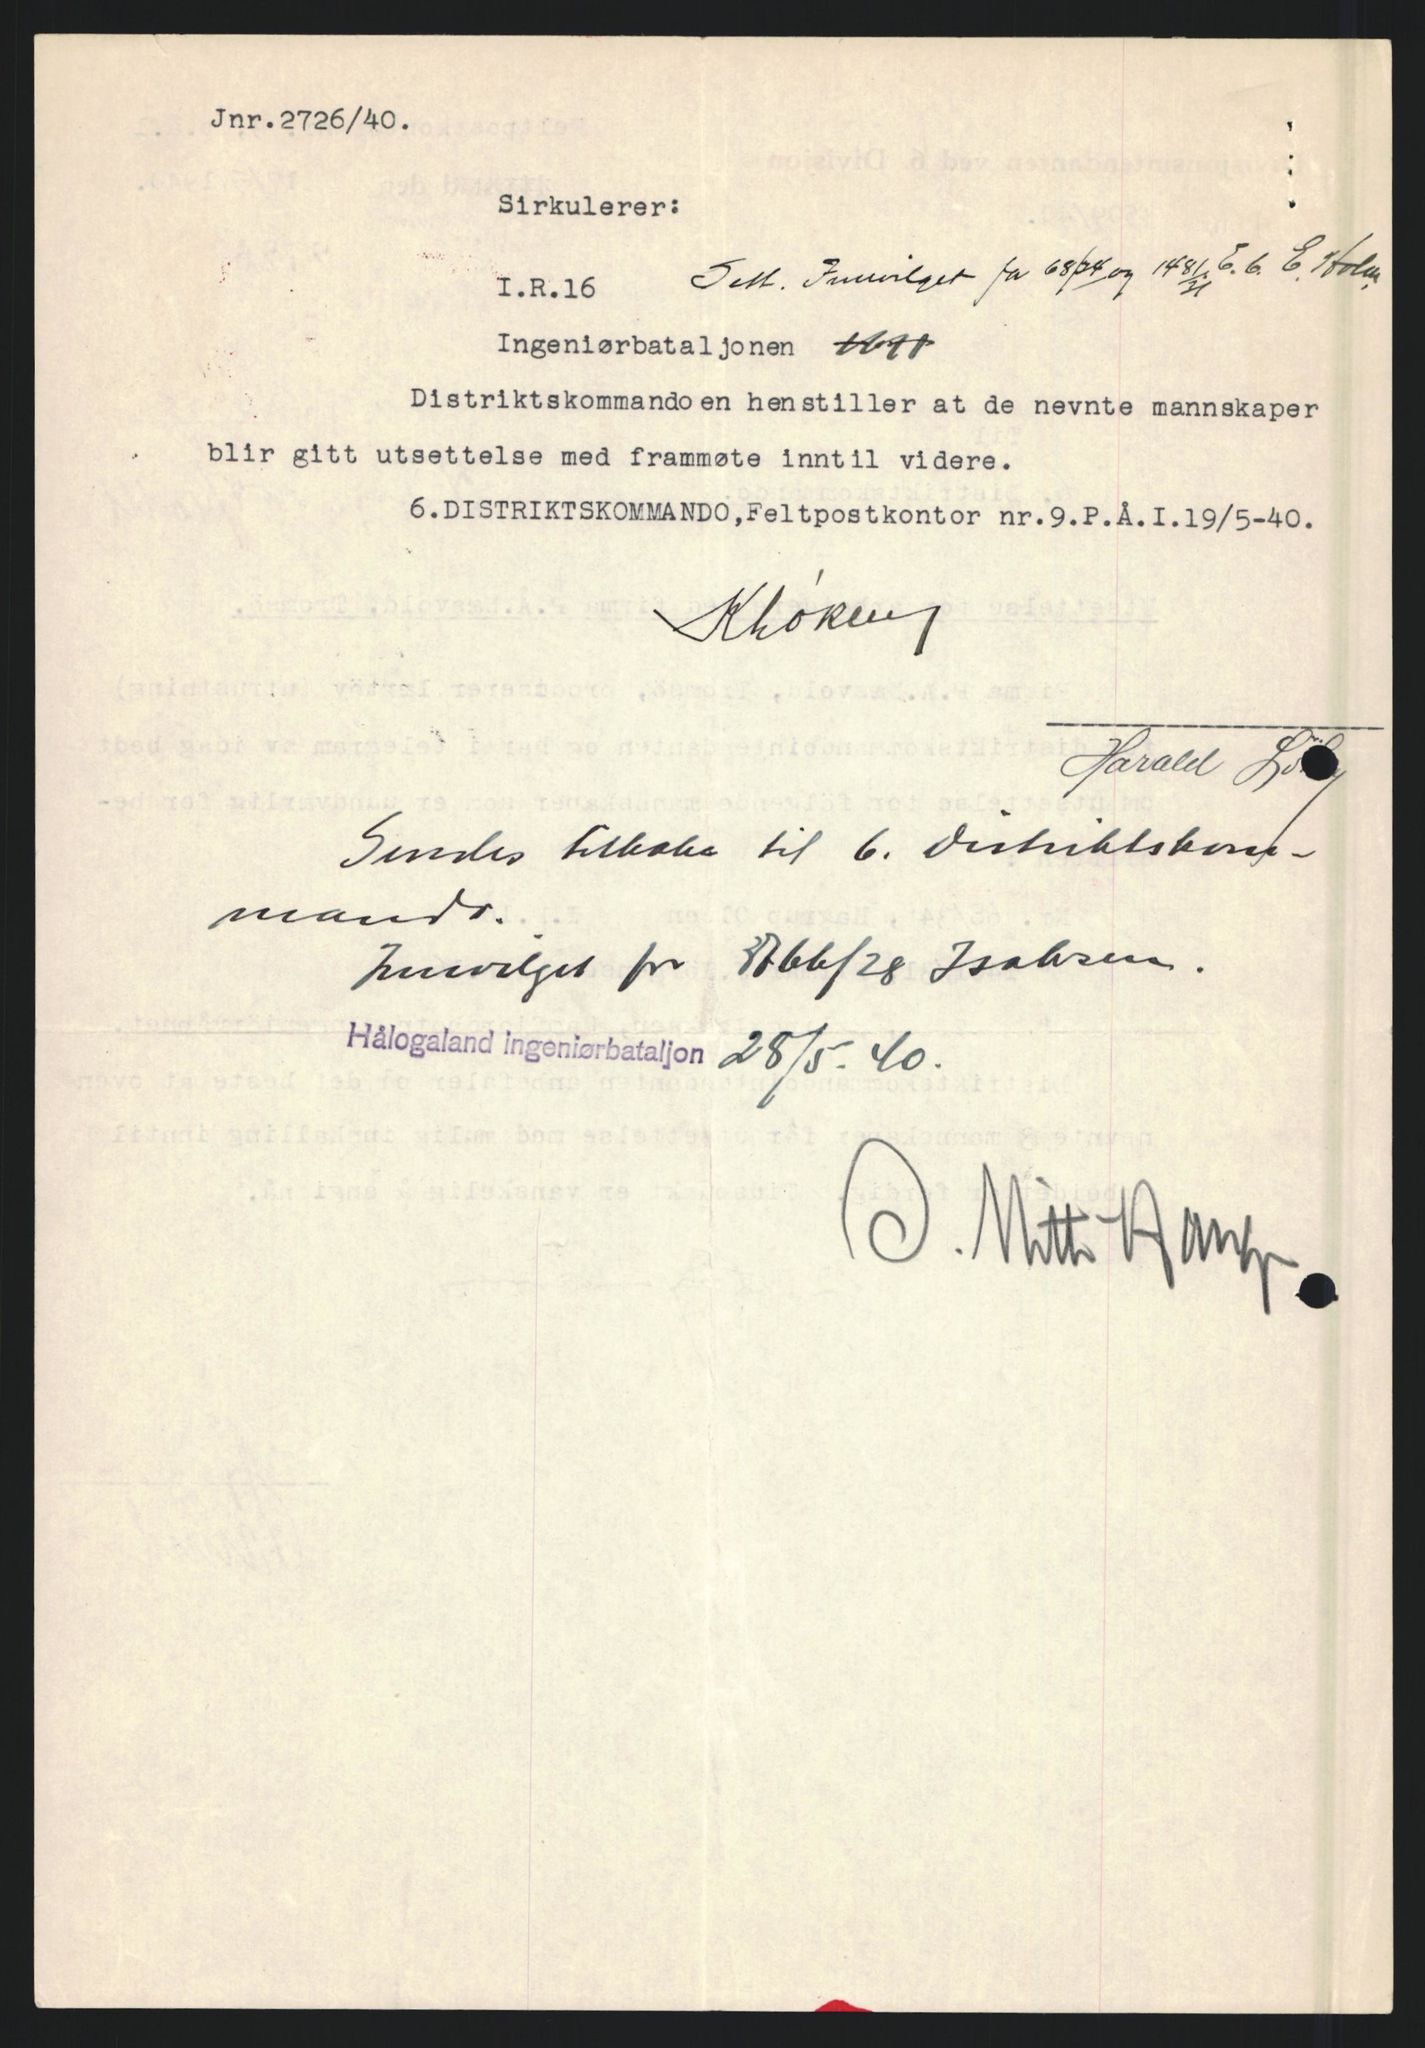 Jnr.2726/40.
Sirkulerer:
I.R.16 Sett. Innvilget for 68/34 og 148/31 E. b. E. Holm.
Ingeniørbataljonen
Distriktskommandoen henstiller at de nevnte mannskaper
blir gitt utsettelse med frammøte inntil videre.
6.DISTRIKTSKOMMANDO,Feltpostkontor nr.9.P.Å.I.19/5-40.
Harald
Sendes tilbake til 6. Distriktskom-
mando.
Innvilget for 3766/28 Isaksen.
Hålogaland ingeniørbataljon 28/5-40.